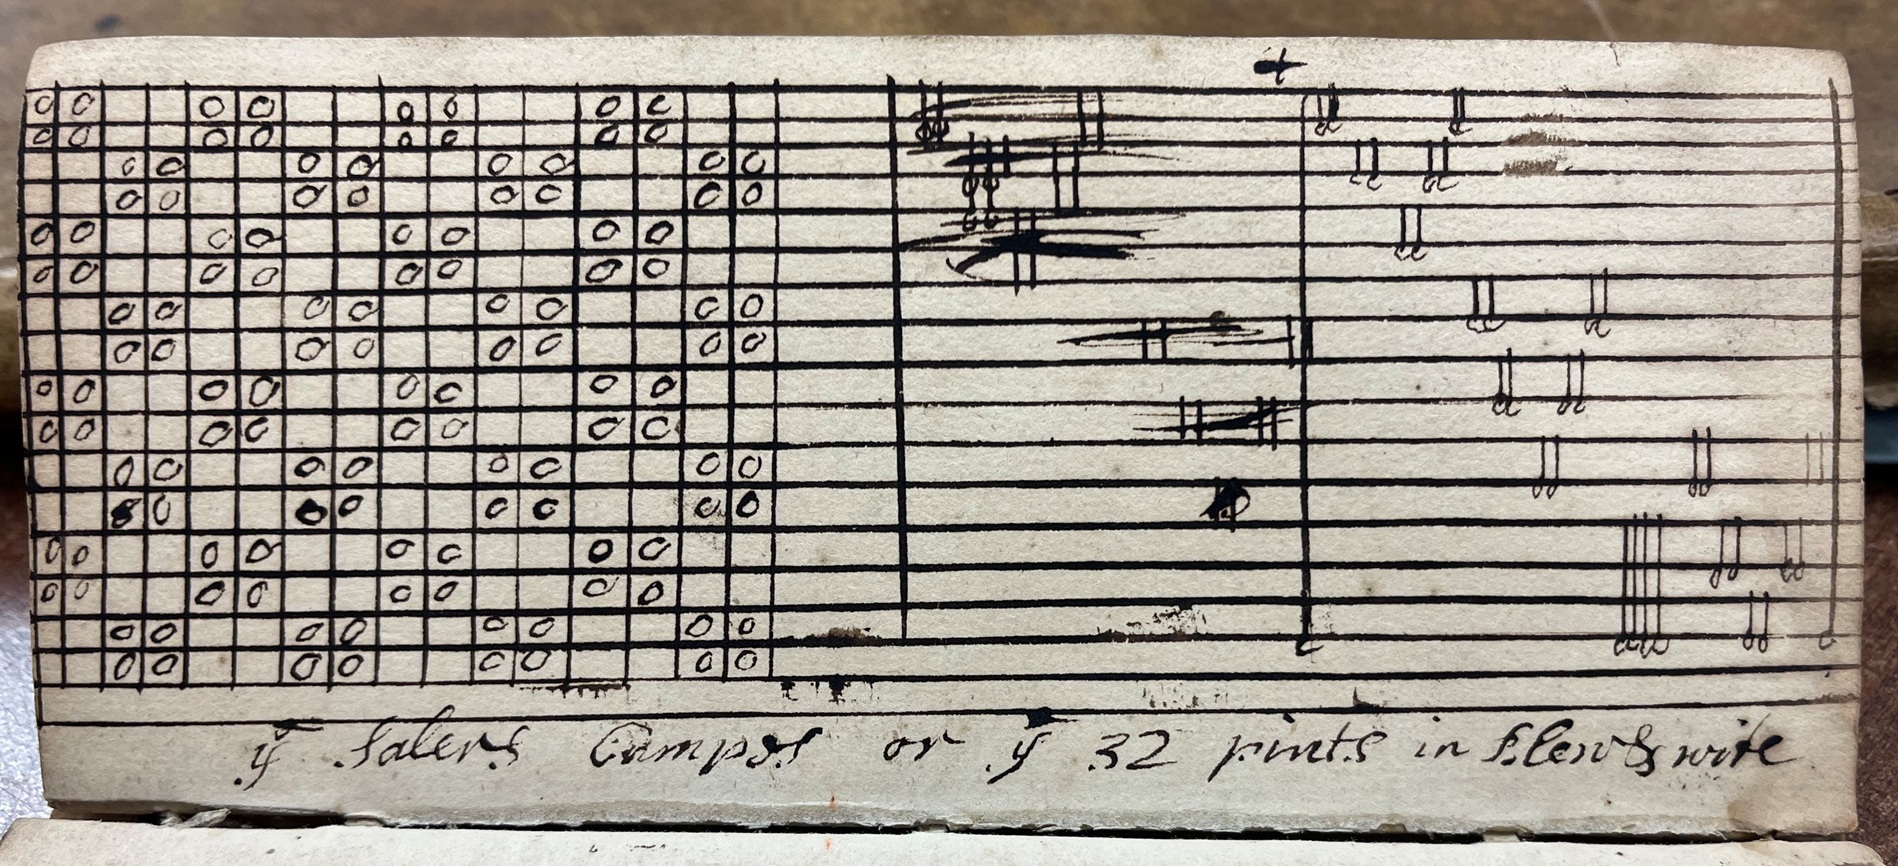 yͤ Salers Compos or yͤ 32 pints in blew & wite